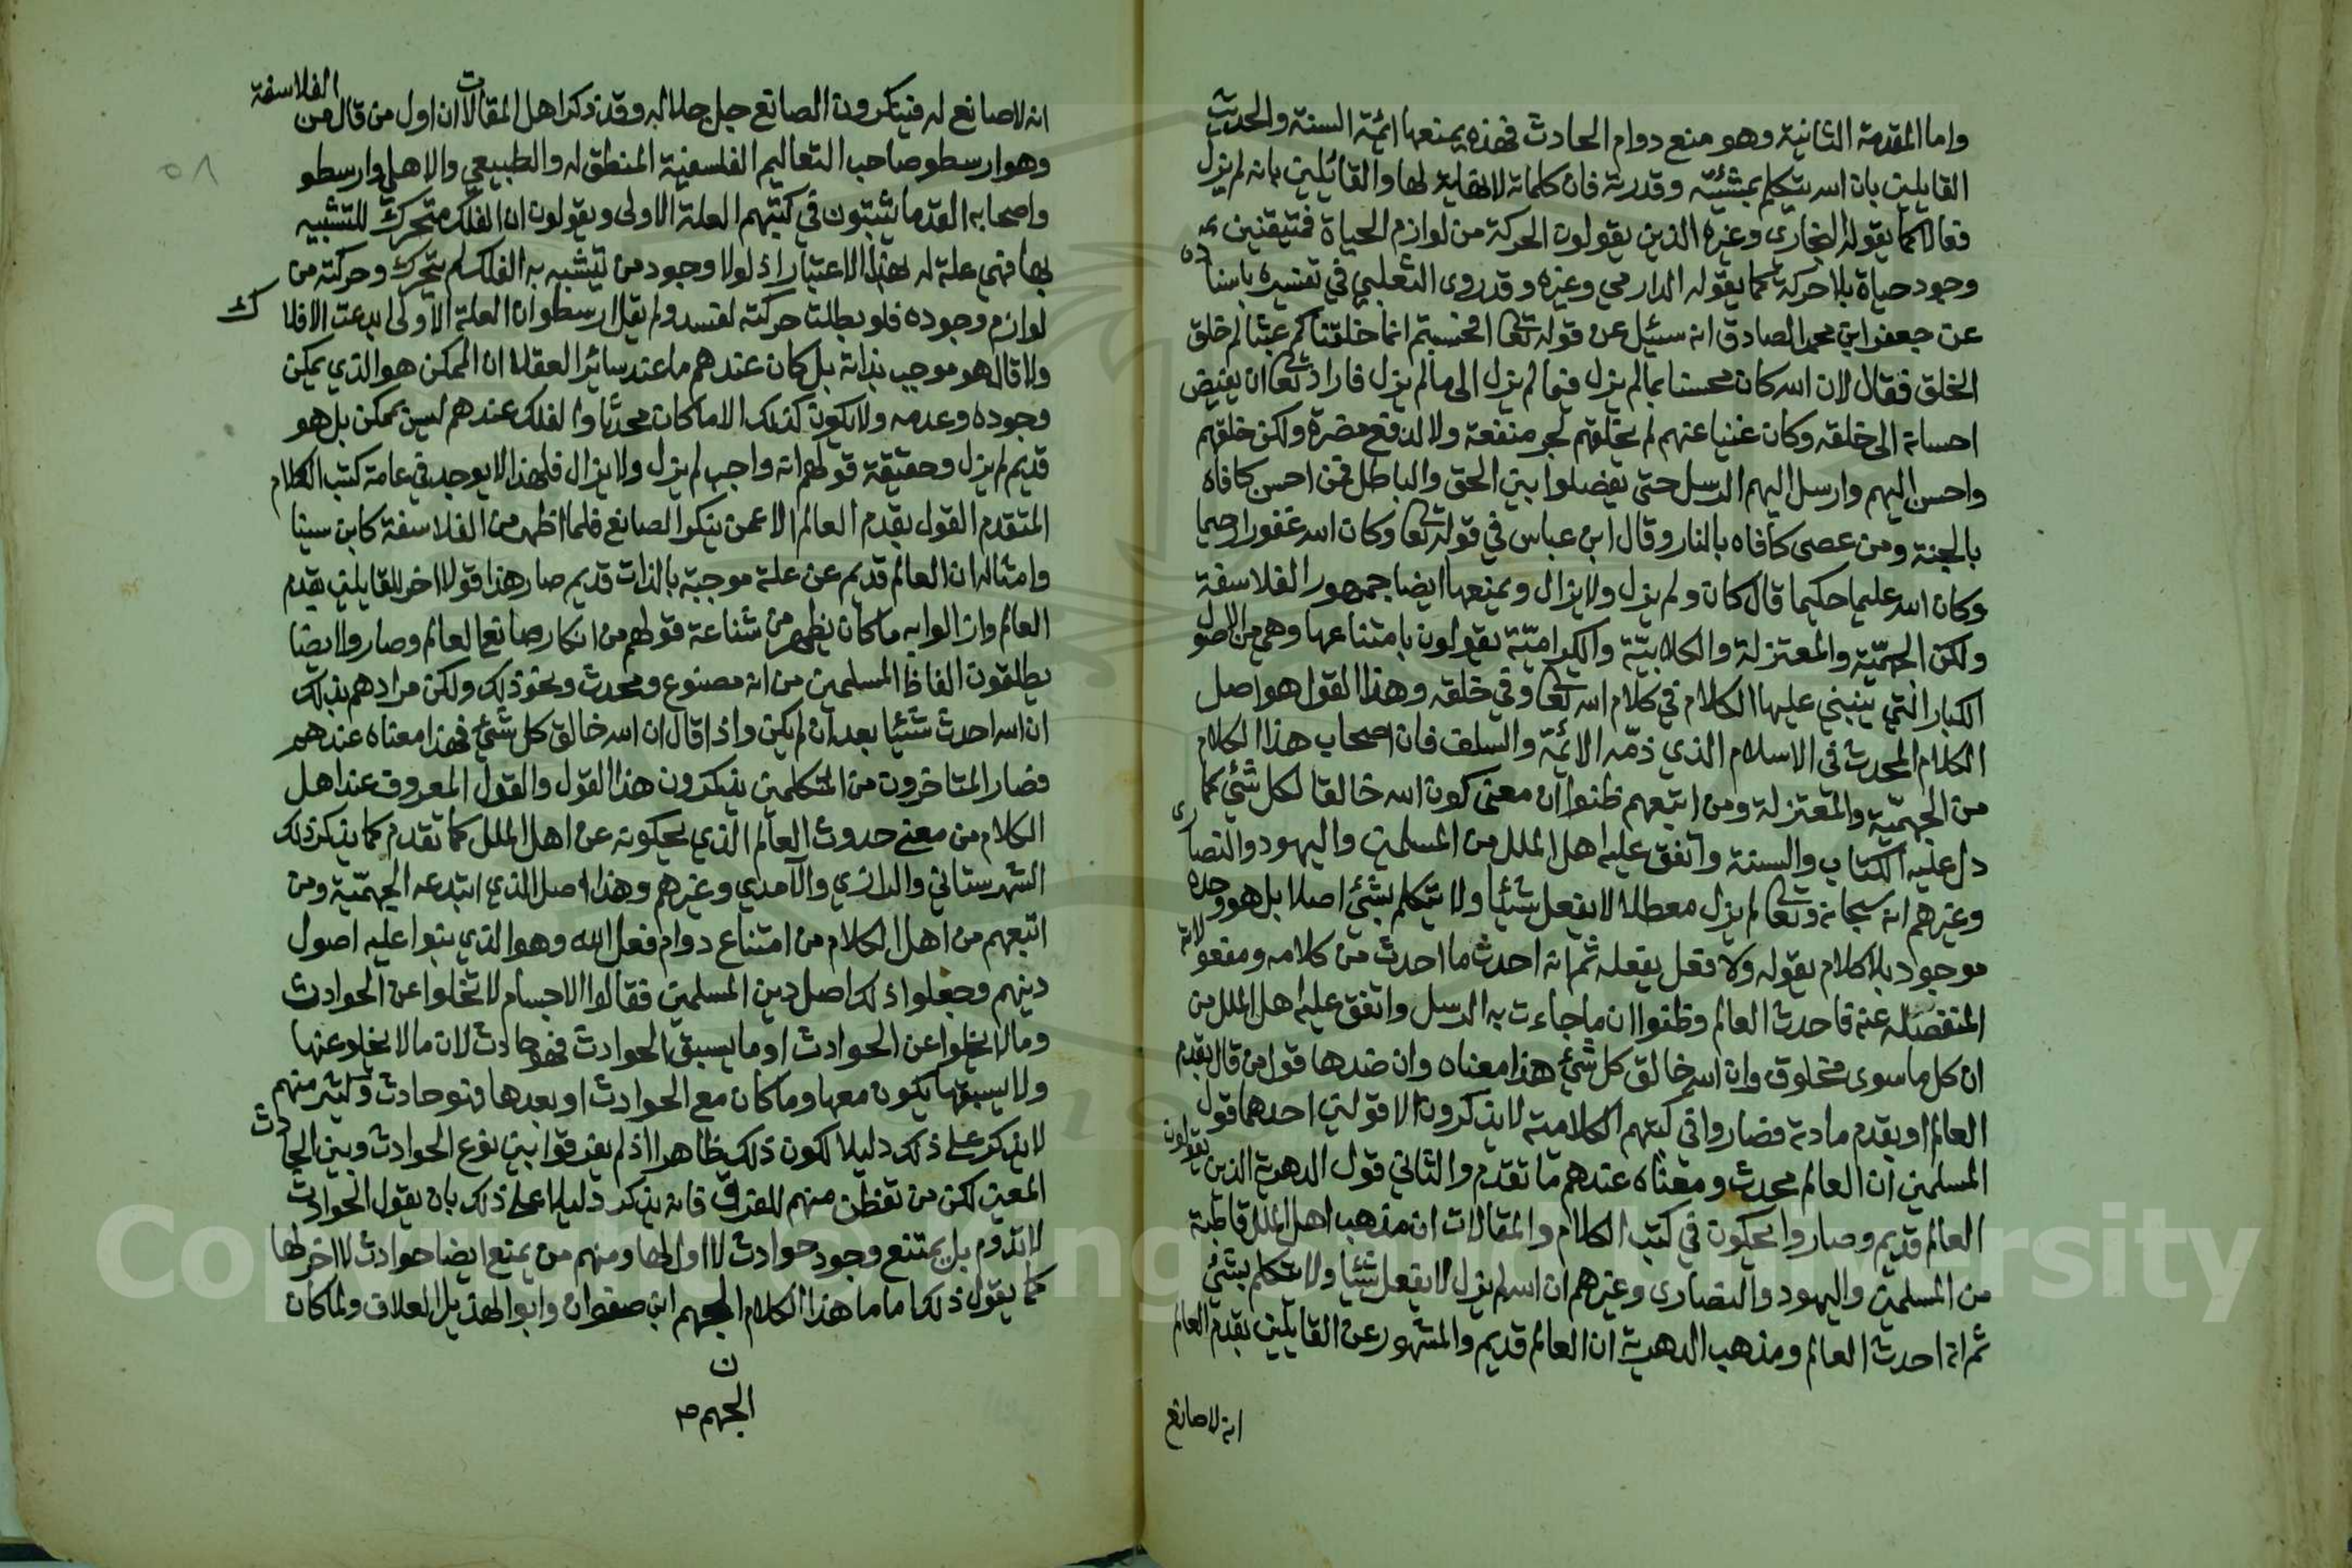 واما المقدمة الثانية وهو منع دوام الحادث فهذه يمنعها ائمة السنة والحديث
القايلين بان الله يتكلم بمشئيته وقدرته فان كلماته لا نهاية لها والقائلين بانه لم يزل
فعالا كما يقوله البخاري وغيره الذين يقولون الحركة من لوازم الحياة فتيقنين
وجود حياة بلا حركة كما يقوله الدارمي وغيره وقد روى الثعلبي في تفسيره باسناده
عن جعفر ابن محمد الصادق انه سئيل عن قوله تعا افحسبتم انما خلقناكم عبثا لم خلق
الخلق فقال لان الله كان محسنا بمالم يزل فيما لم يزل الى مالم يزل فاراد تعا ان يفيض
احسانه الى خلقه وكان غنيا عنهم لم يخلقهم لجر منفعة ولا لدفع مضرة ولكن خلقهم
واحسن اليهم وارسل اليهم الرسل حتى يفصلوا بين الحق والباطل فمن احسن كافاه
بالجنة ومن عصى كافاه بالنار وقال ابن عباس في قوله تعا وكان الله غفورا رحيما
وكان الله عليما حكيما قال كان ولم يزل ولا يزال ويمنعها ايضا جمهور الفلاسفة
ولكن الجهميّة والمعتزلة والكلابيّة والكراميّة يقولون بامتناعها وهي من الاصول
الكبار التي ينبني عليها الكلام في كلام الله تعا وفي خلقه وهذا القول هو اصل
الكلام المحدث في الاسلام الذي ذمّه الائمّة والسلف فان اصحاب هذا الكلام
من الجهميّة والمعتزلة ومن اتبعهم ظنوا ان معنى كون الله خالقا لكل شئ كما
دل عليه الكتاب والسنة واتفق عليه اهل الملل من المسلمين واليهود والنصارى
وغيرهم انه سبحانه وتعا لم يزل معطلا لا يفعل شئيا ولا يتكلم بشئ اصلا بل هو وحده
موجود بلا كلام يقوله ولا فعل يفعله ثم انه احدث ما احدث من كلامه ومفعولاته
المنفصله عنه فاحدث العالم وظنوا ان ماجاءت به الرسل واتفق عليه اهل الملل من
ان كل ما سوى مخلوق وان الله خالق كل شئ هذا معناه وان ضدها قوا من قال بقدم
العالم او بقدم مادته فصاروا في كتبهم الكلامية لا يذكرون الا قولين احدهما قول
المسلمين ان العالم محدث ومعناه عندهم ما تقدم والثاني قول الدهرية الذين يقولون
العالم قديم وصاروا يحكون في كتب الكلام والمقالات ان مذهب اهل الملل قاطبة
من المسلمين واليهود والنصارى وغيرهم ان الله لم يزل لا يفعل شئيا ولا يتكلم بشئ
ثم انه احدث العالم ومذهب الدهرية ان العالم قديم والمشهور عن القايلين بقدم العالم
انه لا صانع
انه لا صانع له فينكرون الصانع جل جلاله وقد ذكر اهل المقالات ان اول من قال من الفلاسفة
وهو ارسطو صاحب التعاليم الفلسفية المنطق له والطبيعي والاهلي وارسطو
واصحابه القدما يثبتون في كتبهم العلة الاولى ويقولون ان الفلك متحرك للتشبيه
بها فهي علة له بهذا الاعتبار اذ لولا وجود من يتشبه به الفلك لم يتحرك وحركته من
لوازم وجوده فلو بطلت حركته لفسد ولم يقل ارسطو ان العلة الاولى ابدعت الافلاك
ولا قال هو موجب بذاته بل كان عندهم ما عند سائر العقلا ان الممكن هو الذي يمكن
وجوده وعدمه ولا يكون كذلك الا ما كان محدثا والفلك عندهم ليس بممكن بل هو
قديم لم يزل وحقيقة قولهم انه واجب لم يزل ولا يزال فلهذا لا يوجد في عامة كتب الكلام
المتقدم القول بقدم العالم الا عمن ينكر الصانع فلما اظهر من الفلاسفة كابن سينا
وامثاله ان العالم قديم عن علة موجبة بالذات قديم صار هذا قولا اخر للقايلين بقدم
العالم وازالوا به ما كان يظهر من شناعة قولهم من انكار صانع العالم وصاروا ايضا
يطلقون الفاظ المسلمين من انه مصنوع ومحدث ونحو ذلك ولكن مرادهم بذلك
ان الله احدث شئيا بعد ان لم يكن واذا قال ان الله خالق كل شئ فهذا معناه عندهم
فصار المتاخرون من المتكلمين يذكرون هذا القول والقول المعروف عند اهل
الكلام من معنى حدوث العالم الذي يحكونه عن اهل الملل كما تقدم كما يذكر ذلك
الشهرستاني والرازي والآمدي وغيرهم وهذا اصل الذي ابتدعه الجهميّة ومن
اتبعهم من اهل الكلام من امتناع دوام فعل الله وهو الذي بنوا عليه اصول
دينهم وجعلوا ذلك اصل دين المسلمين فقالوا الاجسام لا تخلوا عن الحوادث
ومالا يخلوا عن الحوادث او ما يسبق الحوادث فهو حادث لان مالا يخلو عنها
ولا يسبقها يكون معها وما كان مع الحوادث او بعدها فهو حادث وكثير منهم
لا يذكر على ذلك دليلا لكون ذلك ظاهرا اذ لم يفرقوا بين نوع الحوادث وبين الحادث
المعين لكن من تفطن منهم للفرق فانه يذكر دليلا على ذلك بان يقول الحوادث
لا تدوم بل يمتنع وجود حوادث لا اول لها ومنهم من يمنع ايضا حوادث لا اخر لها
كما يقول ذلك اماما هذا الكلام الجهم ابن صفوان وابو الهذيل العلاف ولما كان
ن
الجهم